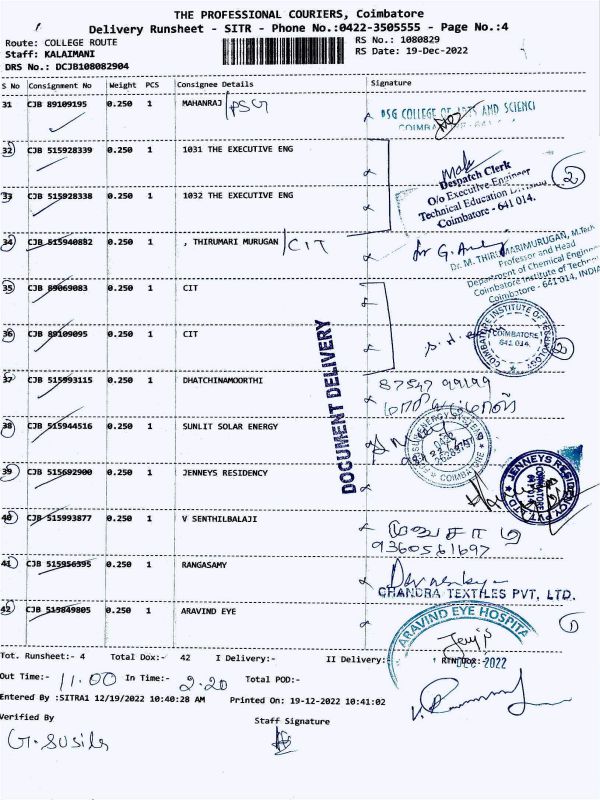 THE PROFESSIONAL COURIERS, Coimbatore
Delivery Runsheet - SITR - Phone No.:0422-3505555 - Page No.:4
Route: COLLEGE ROUTE
RS No.: 1080829
Staff: KALAIMANI
RS Date: 19-Dec-2022
DRS No.: DCJB108082904
S No Consignment No Weight PCS Consignee Details Signature
31 CJB 89109195 0.250 1 MAHANRAJ / PSG
PSG COLLEGE OF ARTS AND SCIENC
COIMBA
32 CJB 515928339 0.250 1 1031 THE EXECUTIVE ENG
Despatch Clerk
O/o Executive Engineer
33 CJB 515928338 0.250 1 1032 THE EXECUTIVE ENG
Technical Education
Coimbatore - 641 014.
2
34 CJB 515940882 0.250 1 , THIRUMARI MURUGAN / CIT
Dr. M. THIRUMARIMURUGAN, M.Tech
Professor and Head
Department of Chemical Engineer
Coimbatore Institute of Techno
Coimbatore - 641 014, INDIA
35 CJB 89069083 0.250 1 CIT
36 CJB 89109095 0.250 1 CIT
COIMBATORE INSTITUTE OF TECHNOLOGY
COIMBATORE
641 014.
37 CJB 515993115 0.250 1 DHATCHINAMOORTHI
87547 99199
38 CJB 515944516 0.250 1 SUNLIT SOLAR ENERGY
DOCUMENT DELIVERY
39 CJB 515692900 0.250 1 JENNEYS RESIDENCY
40 CJB 515993877 0.250 1 V SENTHILBALAJI
9360561697
41 CJB 515956595 0.250 1 RANGASAMY
CHANDRA TEXTILES PVT, LTD.
42 CJB 515849805 0.250 1 ARAVIND EYE
ARAVIND EYE HOSPITA
1
Tot. Runsheet:- 4 Total Dox:- 42 I Delivery:- II Delivery:-
DEC 2022
Out Time:- 11.00 In Time:- 2.20 Total POD:-
Entered By :SITRA1 12/19/2022 10:40:28 AM Printed On: 19-12-2022 10:41:02
Verified By
Staff Signature
G. Susila